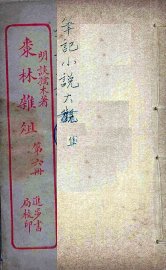 明談孺木著
棗林雜俎
第六冊
進步書局校印
筆記小說大觀